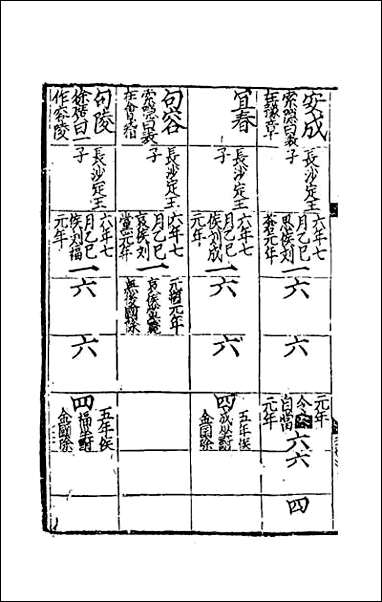 安成
索隱曰表
在豫章
長沙定王
子
六年七
月乙巳
思侯刘
蒼元年
一
六
六
元年
今侯
自當
元年
六
六
四
宜春
長沙定王
子
六年七
月乙巳
侯刘成
元年
一
六
六
四
五年侯
成坐酎
金国除
句容
索隱曰表
在會稽
長沙定王
子
六年七
月乙巳
哀侯刘
黨元年
一
元朔元年
哀侯黨薨
無後國除
句陵
徐廣曰一
作容陵
長沙定王
子
六年七
月乙巳
侯刘福
元年
一
六
六
四
五年侯
福坐酎
金國除